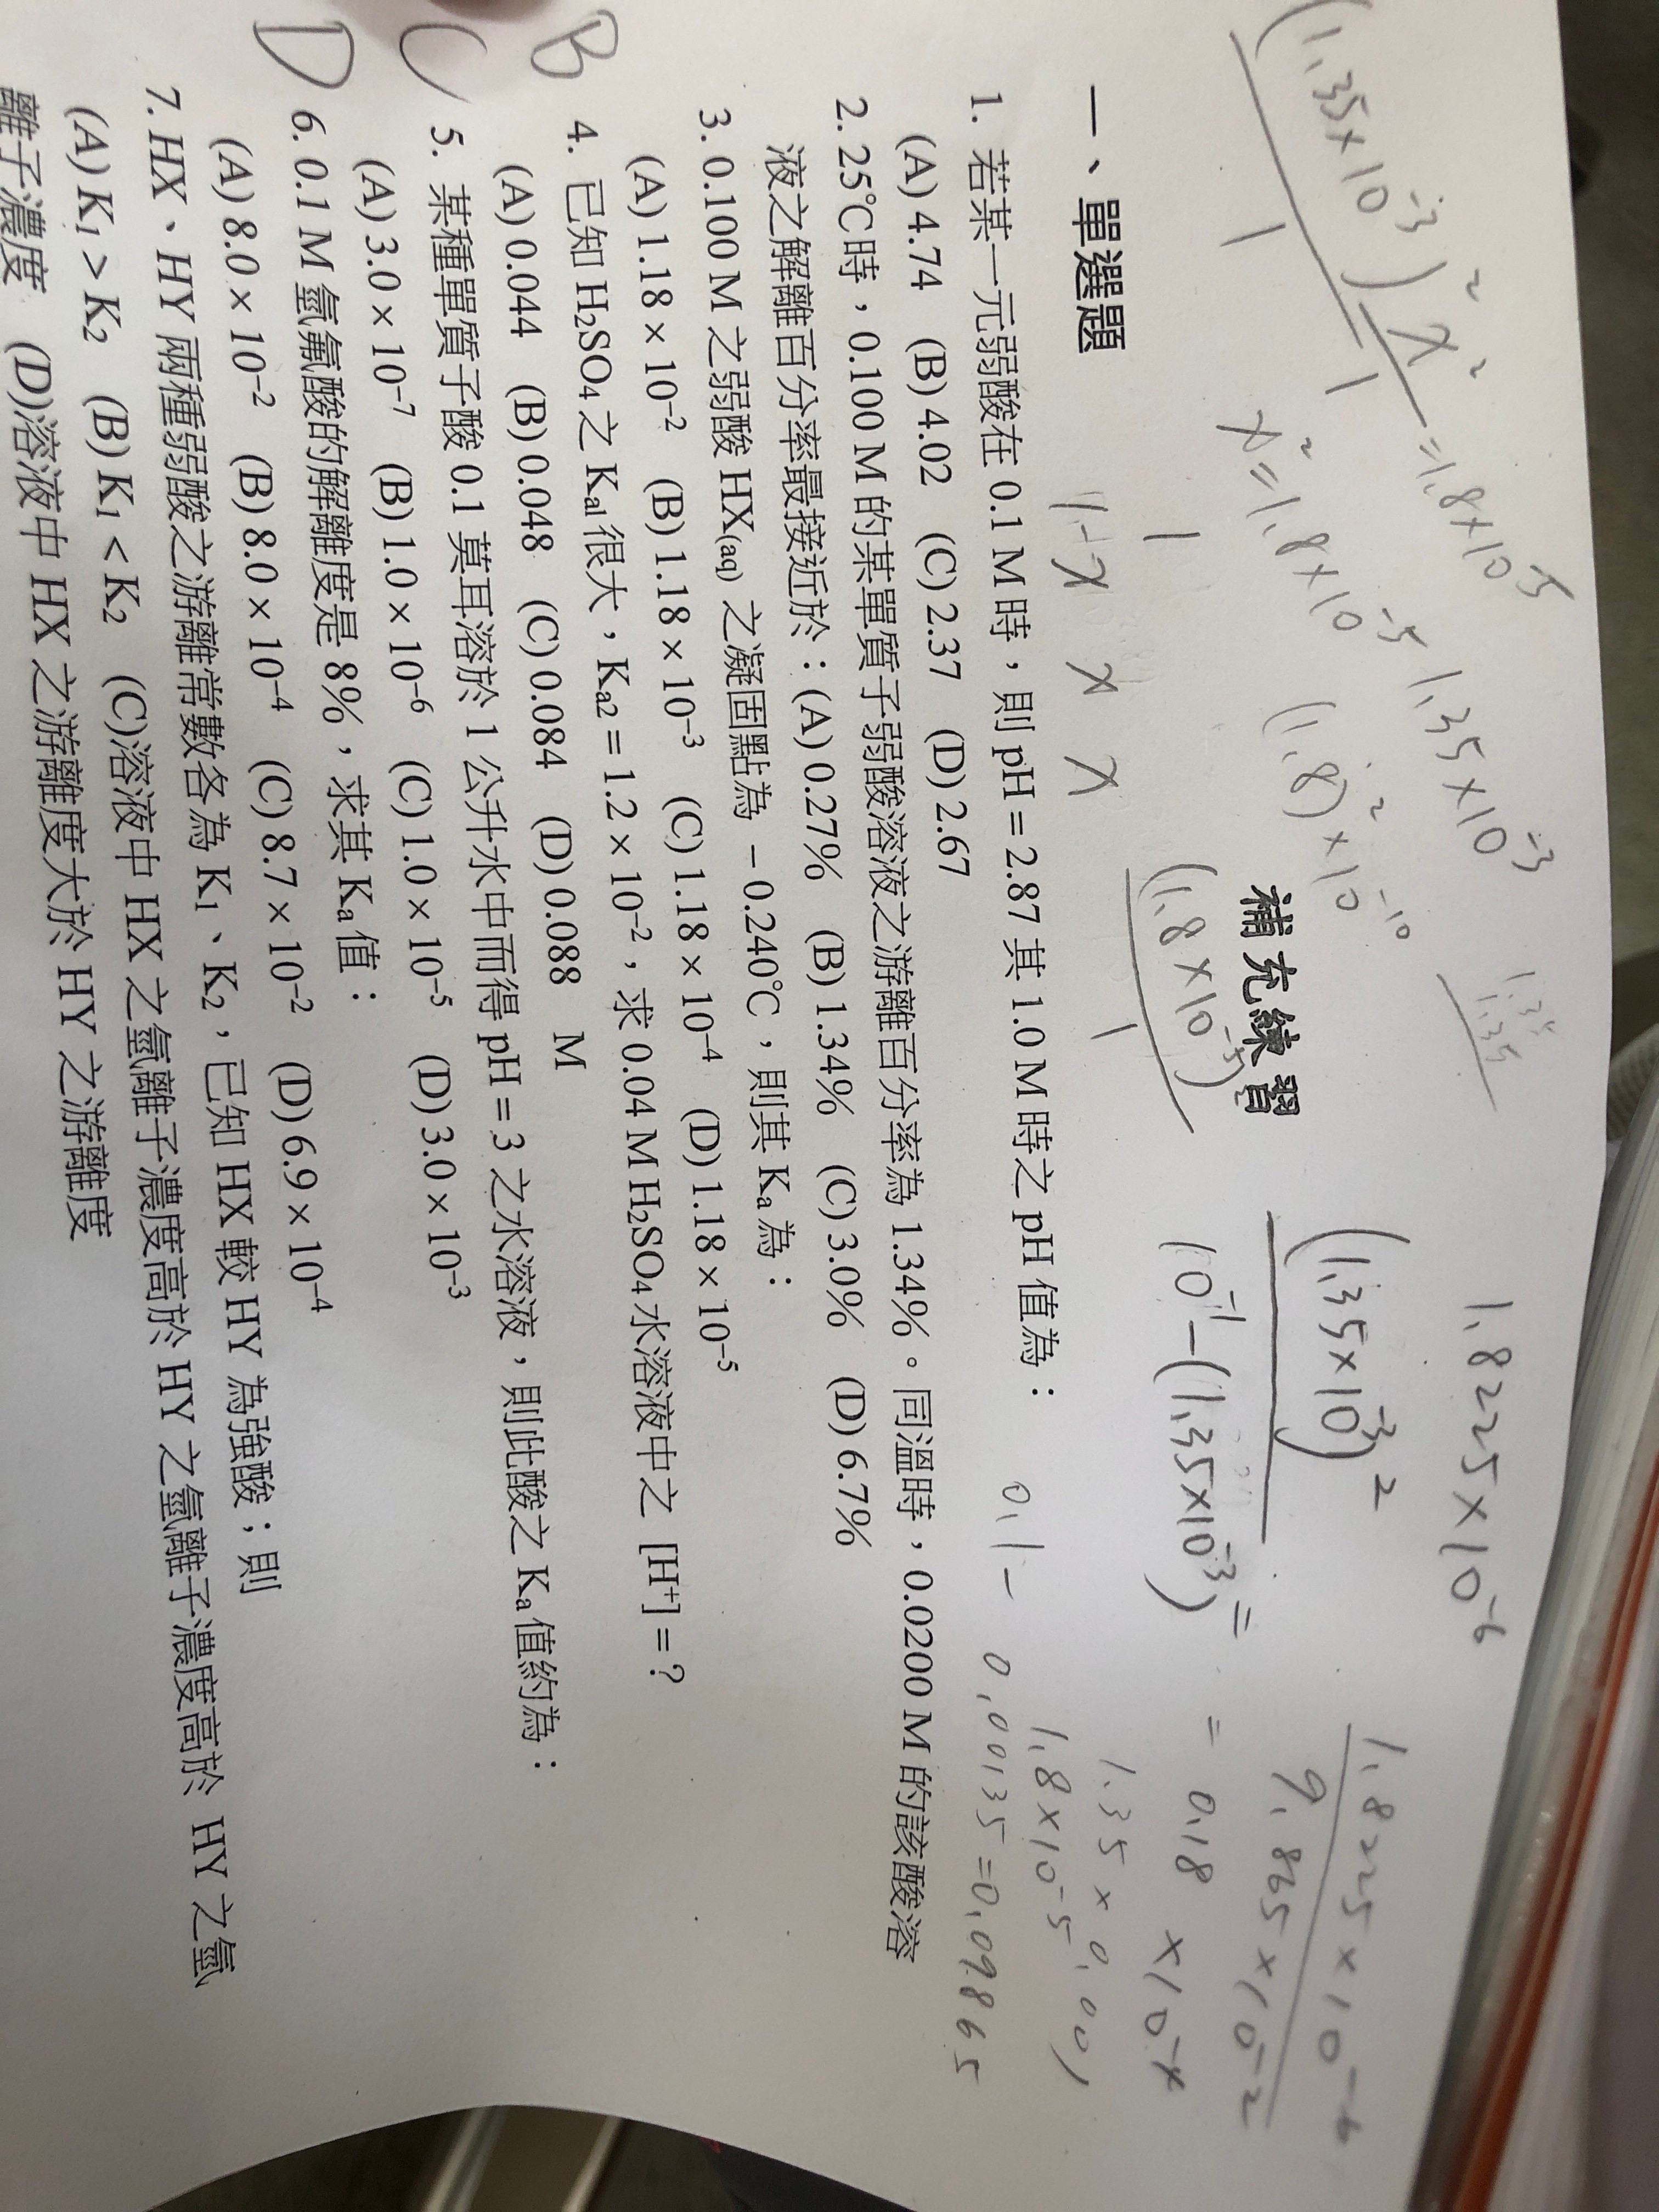 (1.35×10⁻³)² / 1
x² / 1 = 1.8×10⁻⁵
x² = 1.8×10⁻⁵
1.35×10⁻³
(1.8)²×10⁻¹⁰
1.35
1.35
1.8225×10⁻⁶
1
1-x x x
(1.8×10⁻⁵) / 1
(1.35×10⁻³)² / 10⁻¹-(1.35×10⁻³) =
1.8225×10⁻⁶ / 9.865×10⁻²
= 0.18 ×10⁻⁴
1.35×0.001
1.8×10⁻⁵
0.1-0.00135=0.09865
補充練習
一、單選題
1. 若某一元弱酸在 0.1 M 時,則 pH = 2.87 其 1.0 M 時之 pH 值為:
(A) 4.74 (B) 4.02 (C) 2.37 (D) 2.67
2. 25℃時,0.100 M 的某單質子弱酸溶液之游離百分率為 1.34%。同溫時,0.0200 M 的該酸溶
液之解離百分率最接近於:(A) 0.27% (B) 1.34% (C) 3.0% (D) 6.7%
3. 0.100 M 之弱酸 HX(aq) 之凝固點為 –0.240℃,則其 Ka 為:
(A) 1.18 × 10⁻² (B) 1.18 × 10⁻³ (C) 1.18 × 10⁻⁴ (D) 1.18 × 10⁻⁵
B 4. 已知 H₂SO₄ 之 Ka1 很大,Ka2 = 1.2 × 10⁻²,求 0.04 M H₂SO₄ 水溶液中之 [H⁺] = ?
(A) 0.044 (B) 0.048 (C) 0.084 (D) 0.088 M
C 5. 某種單質子酸 0.1 莫耳溶於 1 公升水中而得 pH = 3 之水溶液,則此酸之 Ka 值約為:
(A) 3.0 × 10⁻⁷ (B) 1.0 × 10⁻⁶ (C) 1.0 × 10⁻⁵ (D) 3.0 × 10⁻³
D 6. 0.1 M 氫氟酸的解離度是 8%,求其 Ka 值:
(A) 8.0 × 10⁻² (B) 8.0 × 10⁻⁴ (C) 8.7 × 10⁻² (D) 6.9 × 10⁻⁴
7. HX、HY 兩種弱酸之游離常數各為 K₁、K₂,已知 HX 較 HY 為強酸;則
(A) K₁ > K₂ (B) K₁ < K₂ (C)溶液中 HX 之氫離子濃度高於 HY 之氫離子濃度高於 HY 之氫
離子濃度 (D)溶液中 HX 之游離度大於 HY 之游離度